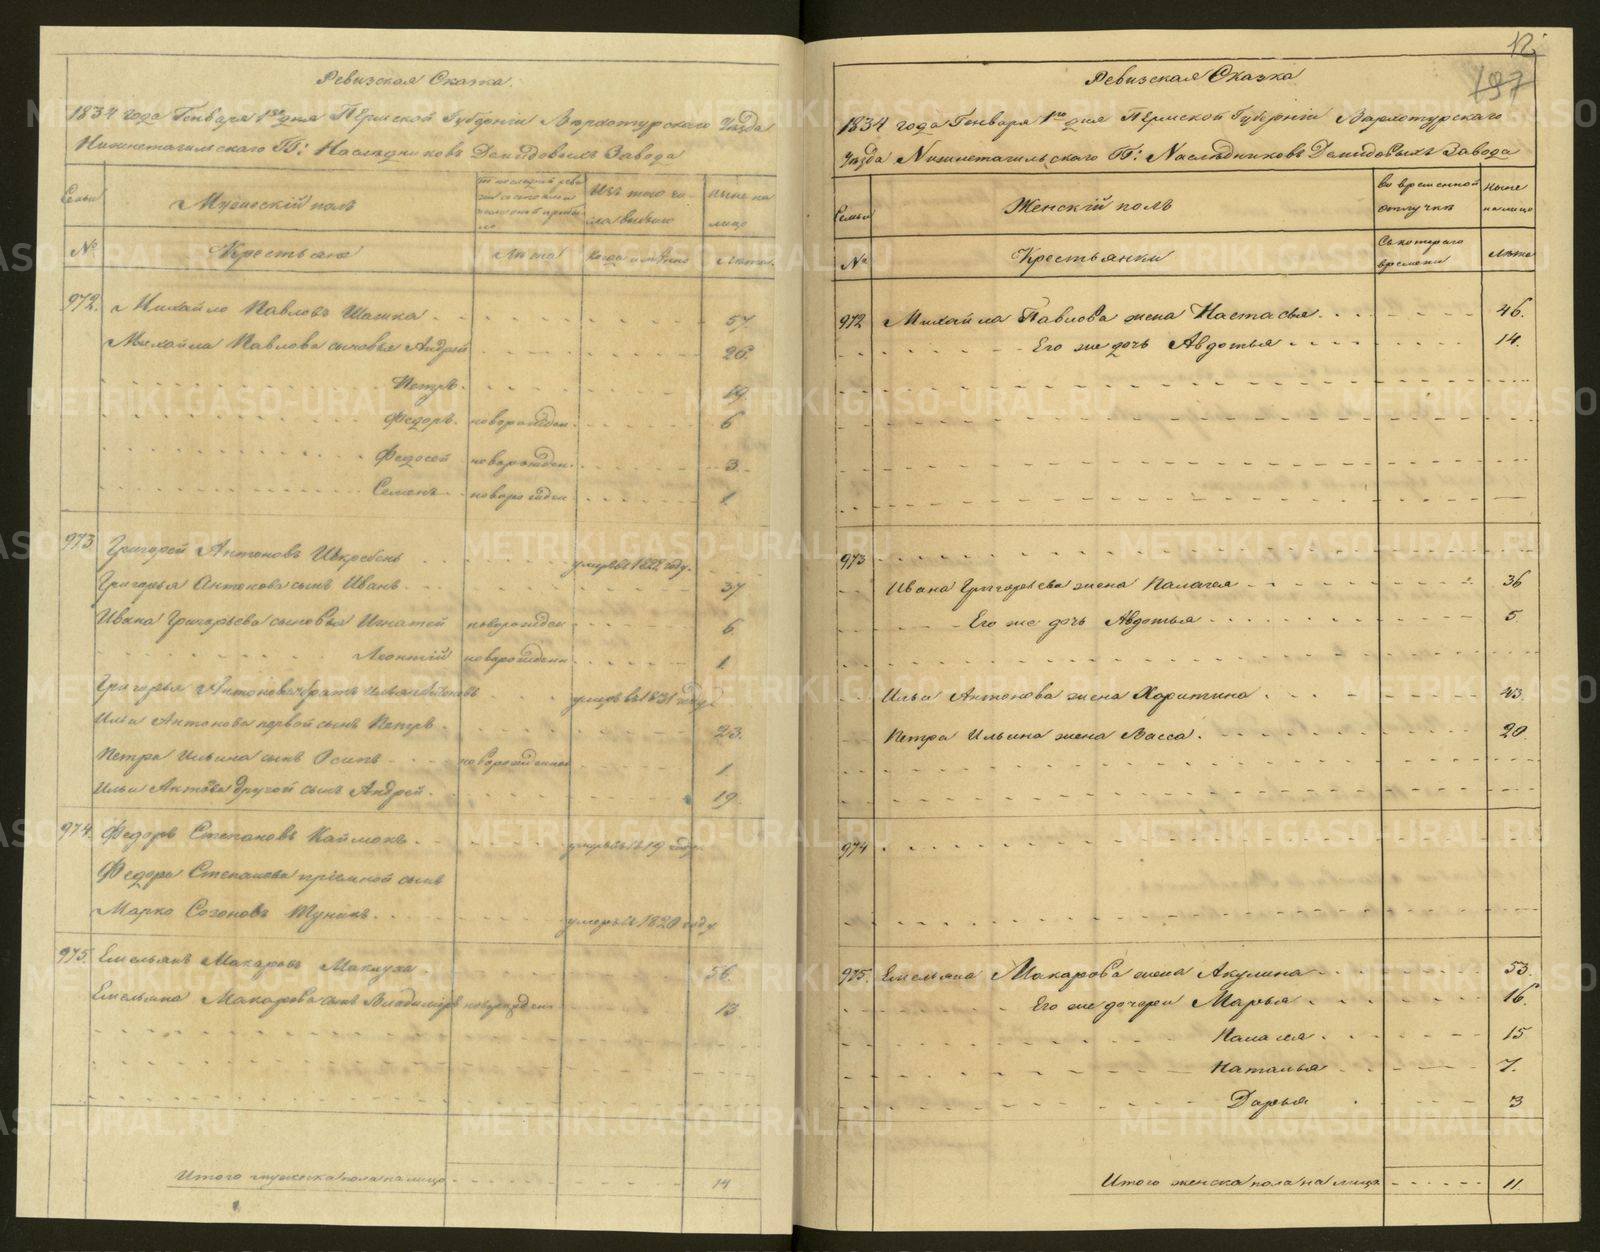 Ревизская Сказка.
1834 года Генваря 1го дня Пермской Губернiи Верхотурскаго Уезда
Нижнетагильскаго ГГ: Наследниковъ Демидовыхъ Завода
Семьи
Мужескiй полъ
Изъ того чи
сла выбыло
Ныне на
лицо
№
Крестьяне
Лета
Когда именно
Лета.
972. Михайло Павловъ Шашка 57.
Михайла Павлова сыновья Андрей 26.
Петръ 19
Федоръ новорожден. 6
Федосей новорожден. 3
Семенъ новорожден 1
973 Григорей Антоновъ умеръ въ 1822 году.
Григорья Антонова сынъ Иванъ 37
Ивана Григорьева сыновья Игнатей новорожден 6
Леонтiй новорожденн 1
Григорья Антонова братъ Илья Антоновъ умеръ въ 1831 году
Ильи Антонова первой сынъ Петръ 23.
Петра Ильина сынъ Осипъ новорожденной 1
Ильи Антонова другой сынъ Андрей 19
974. Федоръ Степановъ умеръ въ 1819 году.
Федора Степанова прiемной сынъ
Марко Созоновъ умеръ въ 1820 году
975. Емельянъ Макаровъ Маклуха 56.
Емельяна Макарова сынъ Владимиръ новорожден. 13
Итого мужеска пола на лицо 14
12
197
Ревизская Сказка
1834 года Генваря 1го дня Пермской Губернiи Верхотурскаго
Уезда Нижнетагильскаго ГГ: Наследниковъ Демидовыхъ Завода
Семьи
Женскiй полъ
во временной
отлучке
Ныне
на лицо
№
Крестьянки
Съ котораго
времени
Лета
972 Михайла Павлова жена Настасья 46.
Его же дочь Авдотья 14.
973
Ивана Григорьева жена Палагея 36
Его же дочь Авдотья 5
Ильи Антонова жена Харитина 43.
Петра Ильина жена Васса. 20
974
975. Емельяна Макарова жена Акулина 53.
Его же дочери Марья 16.
Палагея 15
Наталья 7.
Дарья 3
Итого женска пола на лицо 11.
METRIKI.GASO-URAL.RU